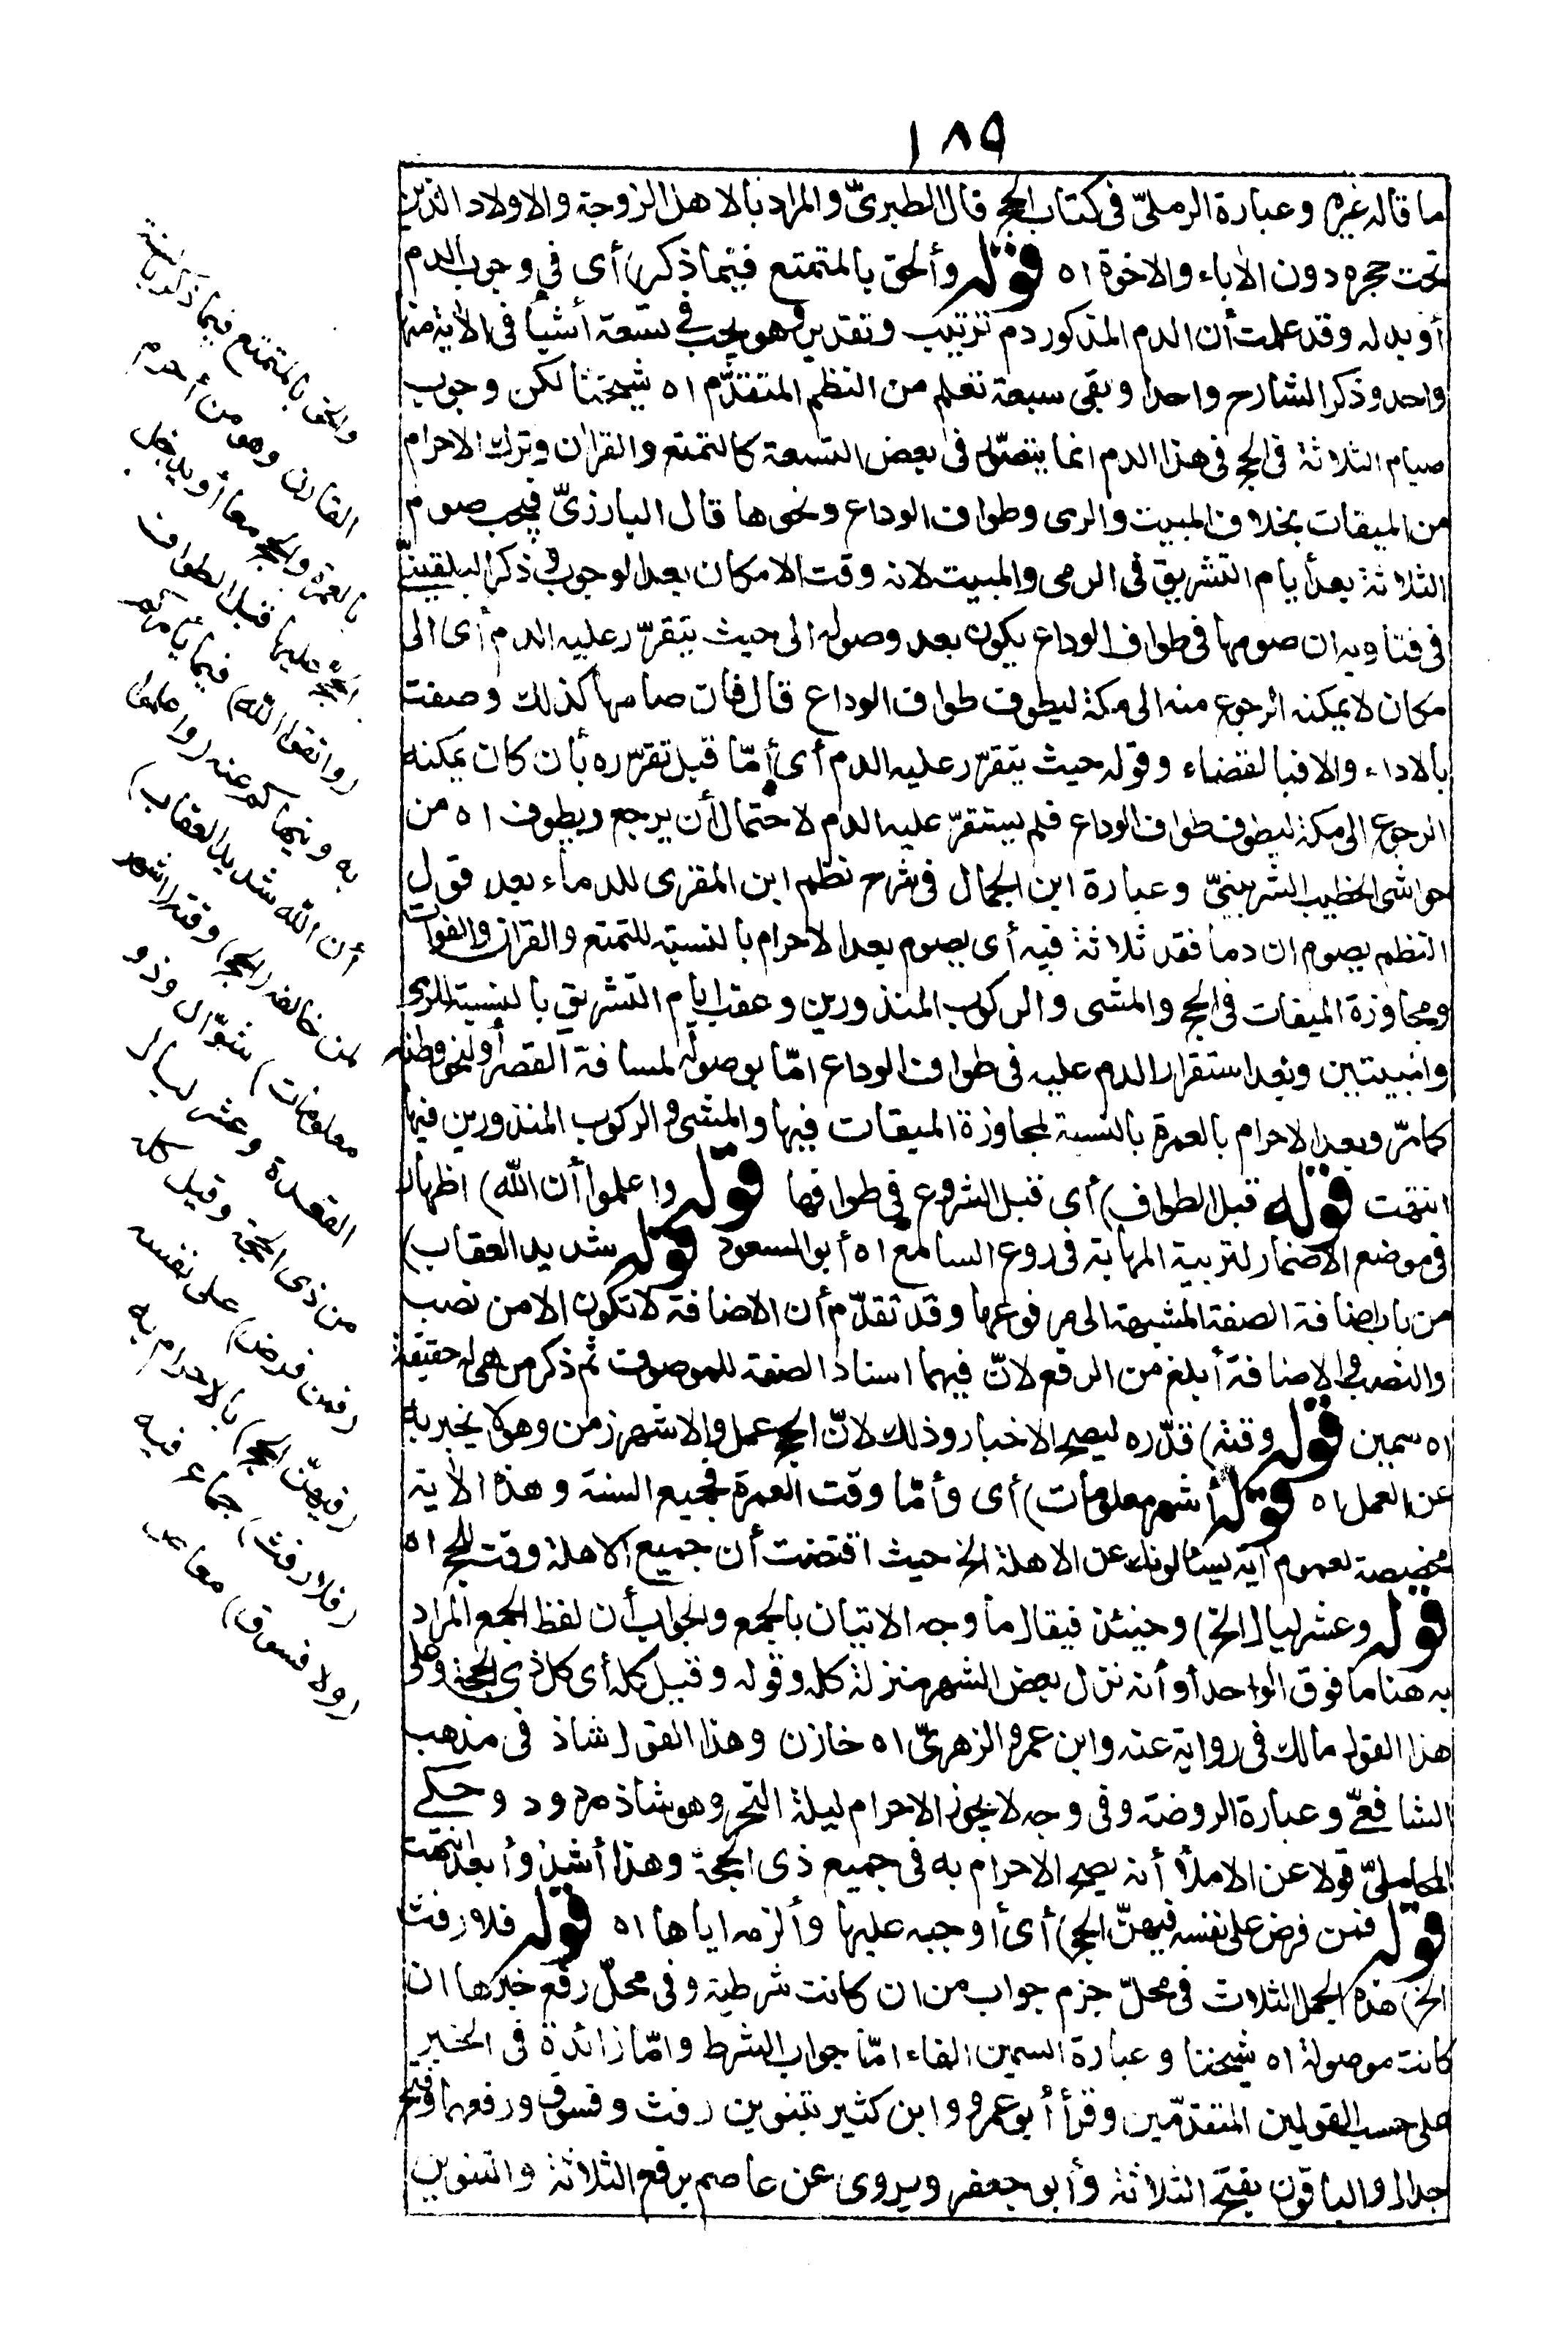 ١٨٩
ما قاله غيره وعبارة الرملىّ فى كتاب الحج قال الطبرىّ والمراد بالاهل الزوجة والاولاد الذين
تحت حجره دون الاباء والاخوة اه قوله وألحق بالمتمتع فيما ذكر) أى فى وجوب الدم
أو بدله وقد علمت أن الدم المذكور دم ترتيب وتقدير وهو يجب فى تسعة أشيأ فى الاية منها
واحد وذكر الشارح واحدا وبقى سبعة تعلم من النظم المتقدّم اه شيخنا لكن وجوب
صيام الثلاثة فى الحج فى هذا الدم انما يتصوّر فى بعض التسعة كالتمتع والقران وترك الاحرام
من الميقات بخلاف المبيت والرمى وطواف الوداع ونحوها قال البارزىّ فيجب صوم
الثلاثة بعد أيام التشريق فى الرمى والمبيت لانه وقت الامكان بعد الوجوب وذكر البلقينىّ
فى فتاويه ان صومها فى طواف الوداع يكون بعد وصوله الى حيث يتقرّر عليه الدم أى الى
مكان لا يمكنه الرجوع منه الى مكة ليطوف طواف الوداع قال فان صامها كذلك وصفت
بالاداء والا فبالقضاء وقوله حيث يتقرّر عليه الدم أى أمّا قبل تقرّره بأن كان يمكنه
الرجوع الى مكة ليطوف طواف الوداع فلم يستقرّ عليه الدم لاحتمال أن يرجع ويطوف اه من
حواشى الخطيب الشربينىّ وعبارة ابن الجمال فى شرح نظم ابن المقرى للدماء بعد قول
النظم يصوم ان دما فقد ثلاثة فيه أى يصوم بعد الاحرام بالنسبة للتمتع والقران والفوات
ومجاوزة الميقات فى الحج والمشى والركوب المنذورين وعقب ايام التشريق بالنسبة للرمى
والمبيتين وبعد استقرار الدم عليه فى طواف الوداع امّا بوصوله لمسافة القصر أو لنحو وطنه
كمامرّ وبعد الاحرام بالعمرة بالنسبة لمجاوزة الميقات فيها والمشى والركوب المنذورين فيها
انتهت قوله قبل الطواف) أى قبل الشروع فى طوافها قوله واعلموا أن الله) اظهار
فى موضع الاضمار لتربية المهابة فى روع السامع اه أبو السعود قوله شديد العقاب)
من باب اضافة الصفة المشبهة الى مرفوعها وقد تقدّم أن الاضافة لا تكون الا من نصب
والنصب والاضافة أبلغ من الرفع لانّ فيهما اسناد الصفة للموصوف ثم ذكر من هى له حقيقة
اه سمين قوله وقته) قدّره ليصح الاخبار وذلك لانّ الحج عمل والاشهر زمن وهو لا يخبر به
عن العمل اه قوله أشهر معلومات) أى وأمّا وقت العمرة فجميع السنة وهذه الاية
مخصصة لعموم آية يسئالونك عن الاهلة الخ حيث اقتضت أن جميع الاهلة وقت للحج اه
قوله وعشر ليال الخ) وحينئذ فيقال ما وجه الاتيان بالجمع والجواب أن لفظ الجمع المراد
به هنا ما فوق الواحد أو أنه نزل بعض الشهر منزلة كله وقوله وقيل كله أى كل ذى الحجة وعلى
هذا القول مالك فى رواية عنه وابن عمر والزهرىّ اه خازن وهذا القول شاذ فى مذهب
الشافعىّ وعبارة الروضة وفى وجه لا يجوز الاحرام ليلة النحر وهو شاذ مردود وحكى
المحاملىّ قولا عن الاملأ أنه يصح الاحرام به فى جميع ذى الحجة وهذا أشذ وأبعد انتهت
قوله فمن فرض على نفسه فيهنّ الحج) أى أوجبه عليها وألزمه اياها اه قوله فلا رفث
الخ) هذه الجمل الثلاث فى محلّ جزم جواب من ان كانت شرطية وفى محلّ رفع خبرها ان
كانت موصولة اه شيخنا وعبارة السمين الفاء امّا جواب الشرط وامّا زائدة فى الخبر
على حسب القولين المتقدّمين وقرأ أبو عمرو وابن كثير بتنوين رفث وفسوق ورفعهما وفتح
جدال والباقون بفتح الثلاثة وأبو جعفر ويروى عن عاصم برفع الثلاثة والتنوين
وألحق بالمتمتع فيما ذكر بالسنة
القارن وهو من أحرم
بالعمرة والحج معا أو يدخل
الحج عليها قبل الطواف
(واتقوا الله) فيما يأمركم
به وينهاكم عنه (واعلموا
أن الله شديد العقاب)
لمن خالفه (الحج) وقته (اشهر
معلومات) شوّال وذو
القعدة وعشر ليال
من ذى الحجة وقيل كله
(فمن فرض) على نفسه
(فيهنّ الحج) بالاحرام به
(فلا رفث) جماع فيه
(ولا فسوق) معاص